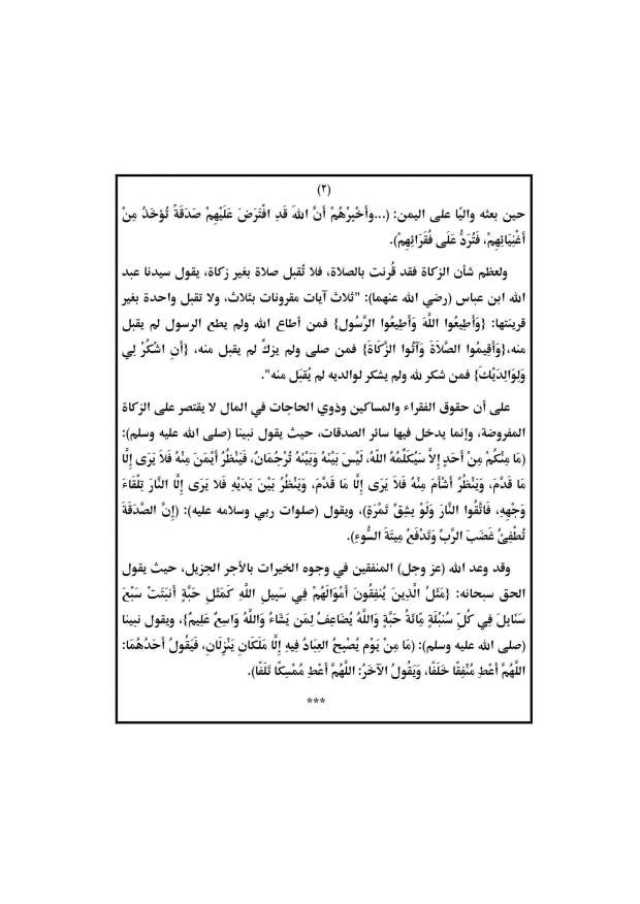 (٢)
حين بعثه واليًا على اليمن: (...وأَخْبِرْهُمْ أَنَّ اللهَ قَدِ افْتَرَضَ عَلَيْهِمْ صَدَقَةً تُؤخَذُ مِنْ
أَغْنِيَائِهِمْ، فَتُرَدُّ عَلَى فُقَرَائِهِمْ).
ولعظم شأن الزكاة فقد قُرنت بالصلاة، فلا تُقبل صلاة بغير زكاة، يقول سيدنا عبد
الله ابن عباس (رضي الله عنهما): "ثلاث آيات مقرونات بثلاث، ولا تقبل واحدة بغير
قرينتها: {وَأَطِيعُوا اللَّهَ وَأَطِيعُوا الرَّسُول} فمن أطاع الله ولم يطع الرسول لم يقبل
منه،{وَأَقِيمُوا الصَّلَاةَ وَآتُوا الزَّكَاةَ} فمن صلى ولم يزكِّ لم يقبل منه، {أَنِ اشْكُرْ لِي
وَلِوَالِدَيْكَ} فمن شكر لله ولم يشكر لوالديه لم يُقبَل منه".
على أن حقوق الفقراء والمساكين وذوي الحاجات في المال لا يقتصر على الزكاة
المفروضة، وإنما يدخل فيها سائر الصدقات، حيث يقول نبينا (صلى الله عليه وسلم):
(مَا مِنْكُمْ مِنْ أَحَدٍ إِلاَّ سَيُكَلِّمُهُ اللَّهُ، لَيْسَ بَيْنَهُ وَبَيْنَهُ تُرْجُمَانٌ، فَيَنْظُرُ أَيْمَنَ مِنْهُ فَلاَ يَرَى إِلَّا
مَا قَدَّمَ، وَيَنْظُرُ أَشْأَمَ مِنْهُ فَلاَ يَرَى إِلَّا مَا قَدَّمَ، وَيَنْظُرُ بَيْنَ يَدَيْهِ فَلا يَرَى إِلَّا النَّارَ تِلْقَاءَ
وَجْهِهِ، فَاتَّقُوا النَّارَ وَلَوْ بِشِقِّ تَمْرَةٍ)، ويقول (صلوات ربي وسلامه عليه): (إِنَّ الصَّدَقَةَ
تُطْفِئُ غَضَبَ الرَّبِّ وَتَدْفَعُ مِيتَةَ السُّوءِ).
وقد وعد الله (عز وجل) المنفقين في وجوه الخيرات بالأجر الجزيل، حيث يقول
الحق سبحانه: {مَثَلُ الَّذِينَ يُنفِقُونَ أَمْوَالَهُمْ فِي سَبِيلِ اللَّهِ كَمَثَلِ حَبَّةٍ أَنبَتَتْ سَبْعَ
سَنَابِلَ فِي كُلِّ سُنبُلَةٍ مِّائَةُ حَبَّةٍ وَاللَّهُ يُضَاعِفُ لِمَن يَشَاءُ وَاللَّهُ وَاسِعٌ عَلِيمٌ}، ويقول نبينا
(صلى الله عليه وسلم): (مَا مِنْ يَوْمٍ يُصْبِحُ العِبَادُ فِيهِ إِلَّا مَلَكَانِ يَنْزِلَانِ، فَيَقُولُ أَحَدُهُمَا:
اللَّهُمَّ أَعْطِ مُنْفِقًا خَلَفًا، وَيَقُولُ الآخَرُ: اللَّهُمَّ أَعْطِ مُمْسِكًا تَلَفًا).
***